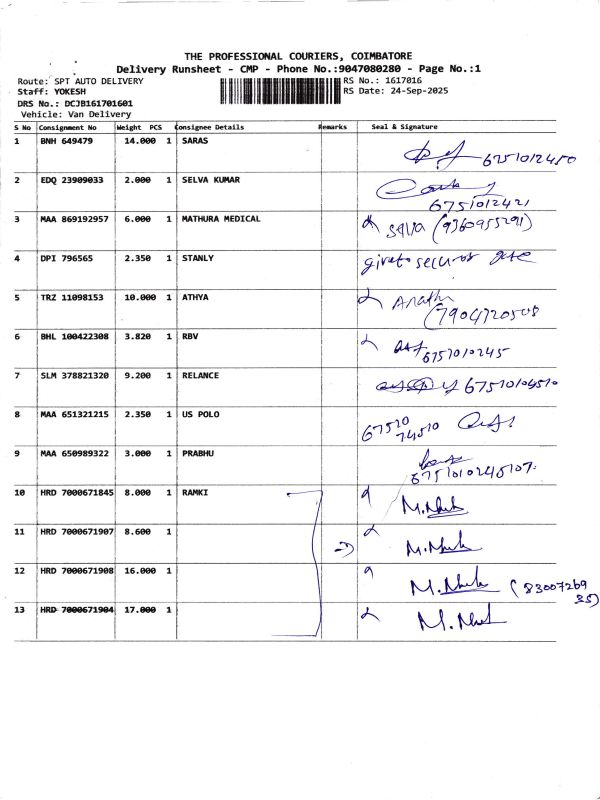 THE PROFESSIONAL COURIERS, COIMBATORE
Delivery Runsheet - CMP - Phone No.:9047080280 - Page No.:1
Route: SPT AUTO DELIVERY RS No.: 1617016
Staff: YOKESH RS Date: 24-Sep-2025
DRS No.: DCJB161701601
Vehicle: Van Delivery
S No Consignment No Weight PCS Consignee Details Remarks Seal & Signature
1 BNH 649479 14.000 1 SARAS
6751012450
2 EDQ 23909033 2.000 1 SELVA KUMAR
6751012421
3 MAA 869192957 6.000 1 MATHURA MEDICAL
selva (9360955291)
4 DPI 796565 2.350 1 STANLY
5 TRZ 11098153 10.000 1 ATHYA
(7904720508
6 BHL 100422308 3.820 1 RBV
6757010245
7 SLM 378821320 9.200 1 RELANCE
67510104510
8 MAA 651321215 2.350 1 US POLO
67510
74510
9 MAA 650989322 3.000 1 PRABHU
6751010245107
10 HRD 7000671845 8.000 1 RAMKI
11 HRD 7000671907 8.600 1
12 HRD 7000671908 16.000 1
(83007269
35)
13 HRD 7000671904 17.000 1